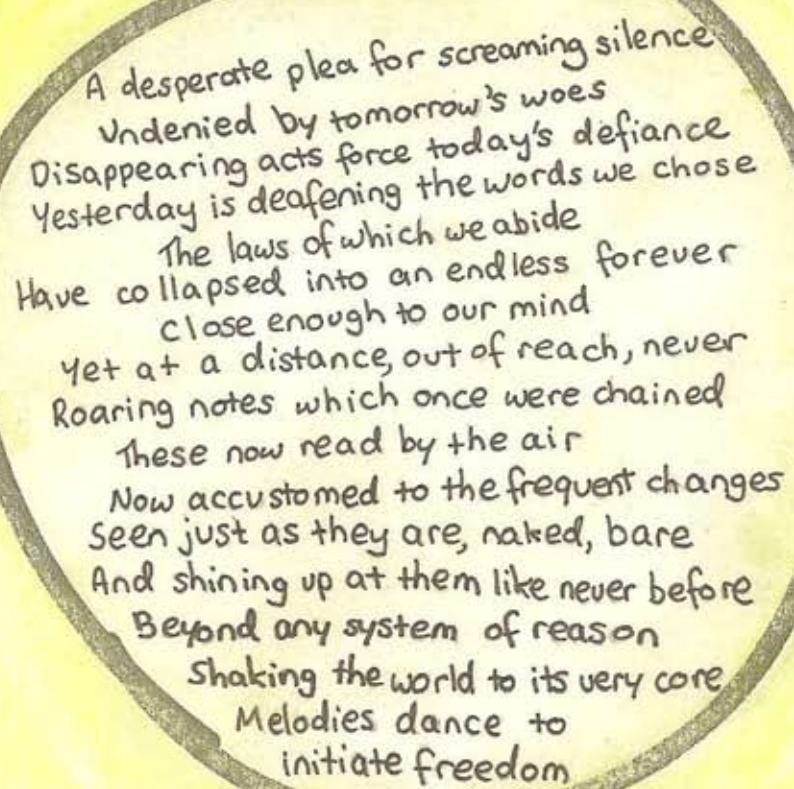 A desperate plea for screaming silence
Undenied by tomorrow's woes
Disappearing acts force today's defiance
Yesterday is deafening the words we chose
The laws of which we abide
Have collapsed into an endless forever
Close enough to our mind
Yet at a distance, out of reach, never
Roaring notes which once were chained
These now read by the air
Now accustomed to the frequent changes
Seen just as they are, naked, bare
And shining up at them like never before
Beyond any system of reason
Shaking the world to its very core
Melodies dance to
initiate freedom